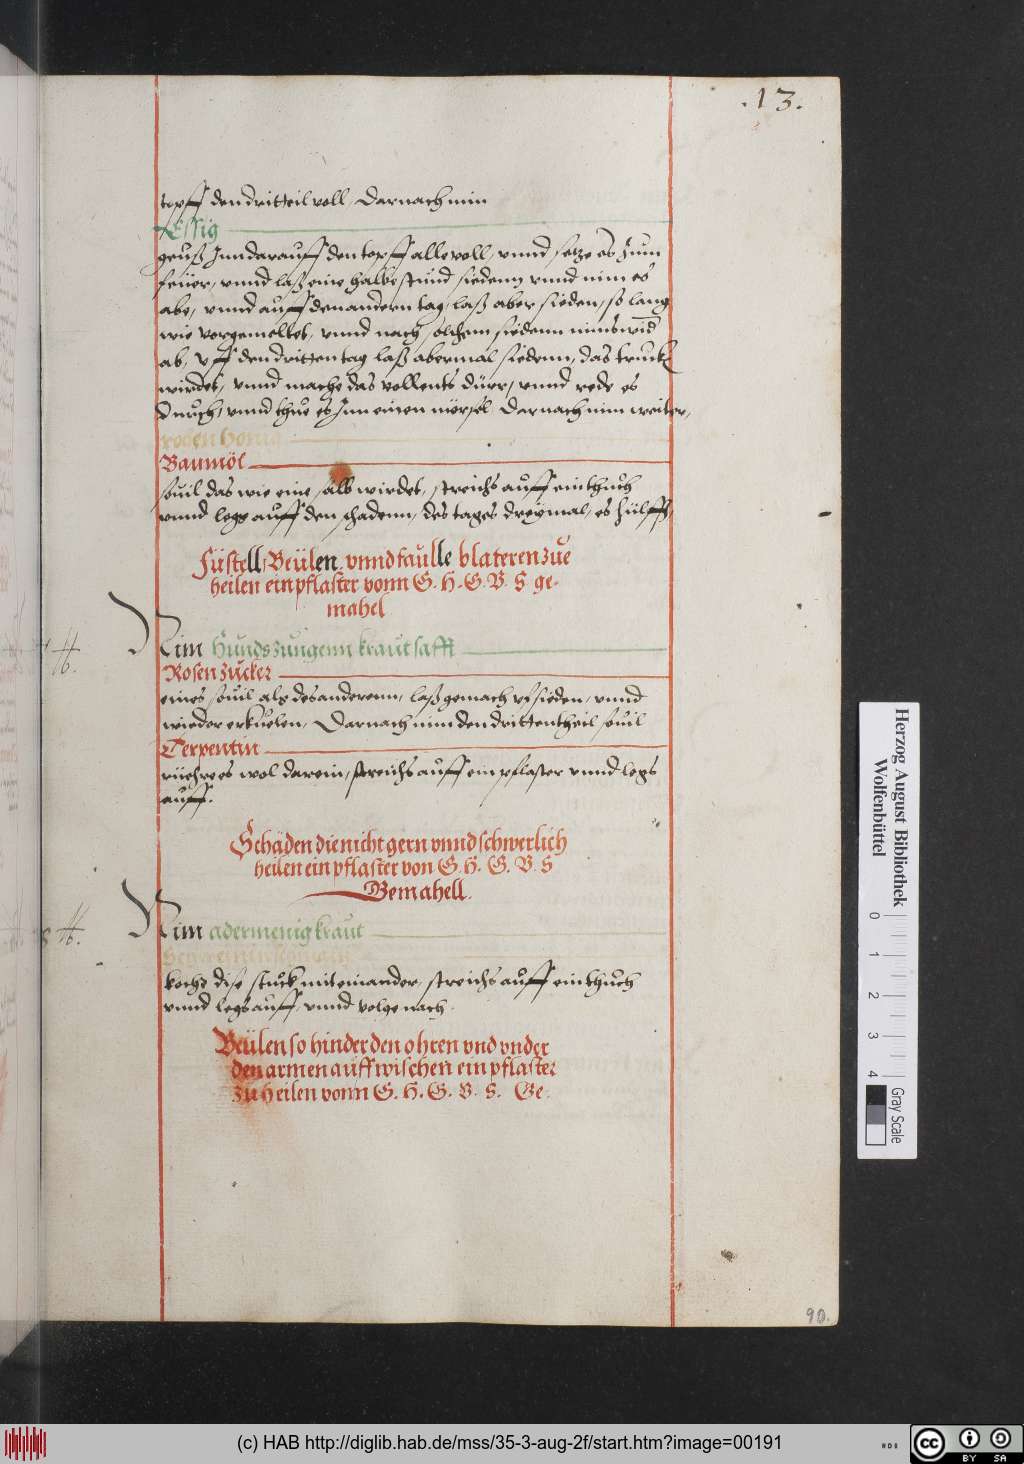 .13.
topff den dritteil voll, Darnach nim
Essig
geuß Inn darauff den topff alle voll, vnnd setze es zum
feüer, vnnd laß eine halbe stund siedenn vnnd nim es
abe, vnnd auff den andern tag, laß aber sieden, so lang
wie vorgemeltet, vnnd nach solchem siedenn nims wid
ab, vff den dritten tag laß abermal siedenn, das trucken
wirdet, vnnd mache das vollents dürr, vnnd rede es
Durch, vnnd thue es Inn einen mörsel Darnach nim weiter,
roden honig
Baumöl
souil das wie eine salb wirdet, streichs auff ein thuch
vnnd lege auff den schadenn, des tages dreymal, es hülfft,
Füstell, Beülen, vnnd faulle blateren zue
heilen ein pflaster vonn G. H. G. V. S ge-
mahel
Nim Hundszungenn kraut safft
Rosenzucker
eines souil als des anderenn, laß gemach vfsieden, vnnd
wieder erkuelen, Darnach nim den dritten theil souil
Terpentin
rüehre es wol darein, streichs auff ein pflaster vnnd legs
auff.
Schäden die nicht gern vnnd schwerlich
heilen ein pflaster von G. H. G. V. S
Gemahell.
Nim adermenig kraut
koche dise stuck mit einander, streichs auff ein thuch
vnnd legs auff, vnnd volge nach.
Beülen so hinder den ohren vnd vnder
den armen auff wischen ein pflaster
zu heilen vonn G. H. G. V. S. Ge-
90.
Herzog August Bibliothek
Wolfenbüttel
0
1
2
3
4
Gray Scale
(c) HAB http://diglib.hab.de/mss/35-3-aug-2f/start.htm?image=00191
cc
BY SA